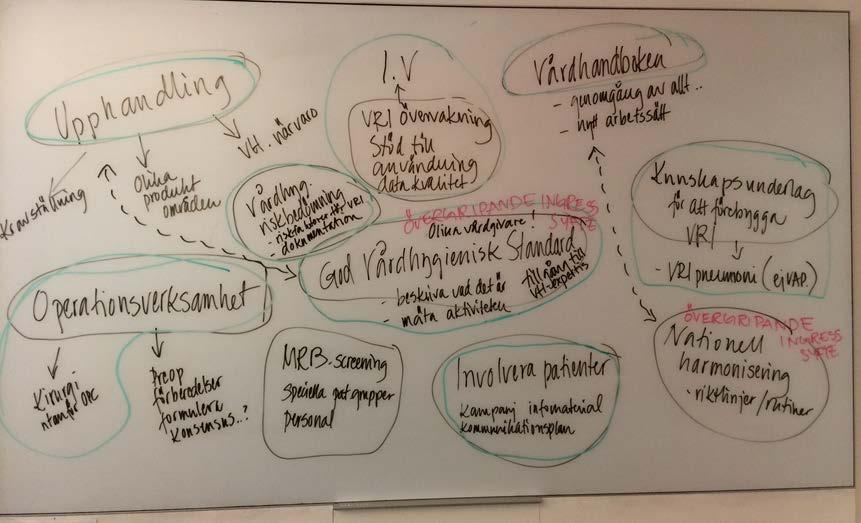 Upphandling
Kravställning
Olika
produkt
områden
VH. närvaro
I.V
VRI övervakning
Stöd till
användning
datakvalitet
Vårdhandboken
- genomgång av allt..
- nytt arbetssätt
Vårdhyg.
riskbedömning
- riskfaktorer för VRI
- dokumentation
ÖVERGRIPANDE INGRESS
SYFTE
Olika vårdgivare!
God Vårdhygienisk Standard
- beskriva vad det är
- mäta aktiviteter
till gång till
VH-expertis
Kunskapsunderlag
för att förebygga
VRI
- VRI pneumoni (ej VAP)
Operationsverksamhet
Kirurgi
utanför OP
Preop
förberedelser
formulera
konsensus..?
MRB-screening
speciella patgrupper
personal
Involvera patienter
kampanj infomaterial
kommunikationsplan
ÖVERGRIPANDE
INGRESS
SYFTE
Nationell
harmonisering
- riktlinjer/rutiner